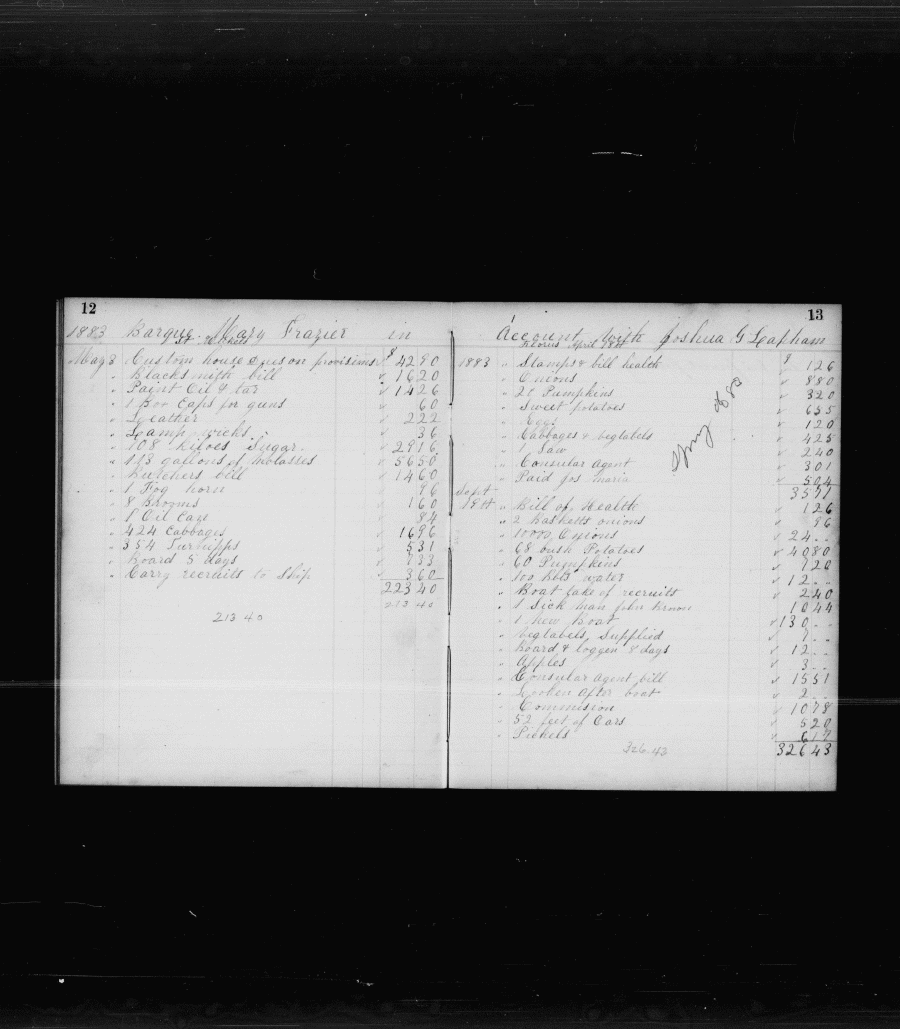 12
1883 Barque Mary Frazier in
May 3 Custom house dues on provisions $ 42 90
" Blacksmith bill 16 20
" Paint Oil & tar 14 26
" 1 Box Caps for guns 60
" Leather 2 22
" Lamp wicks 36
" 108 kiloes Sugar 29 16
" 113 gallons of Molasses 56 50
" Butchers bill 14 60
" 1 Fog horn 96
" 8 Brooms 1 60
" 1 Oil Can 84
" 424 Cabbages 16 96
" 354 Turnipps 5 31
" Board 5 days 7 33
" Carry recruits to Ship 3 60
223 40
213 40
213 40
13
Account with Joshua G Lapham
April 18th
1883 " Stamps & bill health $ 1 26
" Onions 8 80
" Pumpkins 3 20
" Sweet potatoes 6 55
" Eggs 1 20
" Cabbages & vegtabels 4 25
" Saw 2 40
" Consular Agent 3 01
" Paid Jos Maria 5 04
35 71
Sept
18th " Bill of Health 1 26
" 2 Basketts onions 96
" Onions 24 " "
" 68 bush Potatoes 40 80
" 60 Pumpkins 7 20
" 100 Bbls water 12 " "
" Boat take of recruits 2 40
" 1 Sick man John 10 44
" 1 New Boat 130 " "
" vegtabels Supplied 7 " "
" Board & loggen 8 days 12 " "
" Apples 3 " "
" Consular Agent bill 15 51
" Looken after boat 2 " "
" Commission 10 78
" 52 feet of Oars 5 20
" Pickels 6 17
326 43
326.43